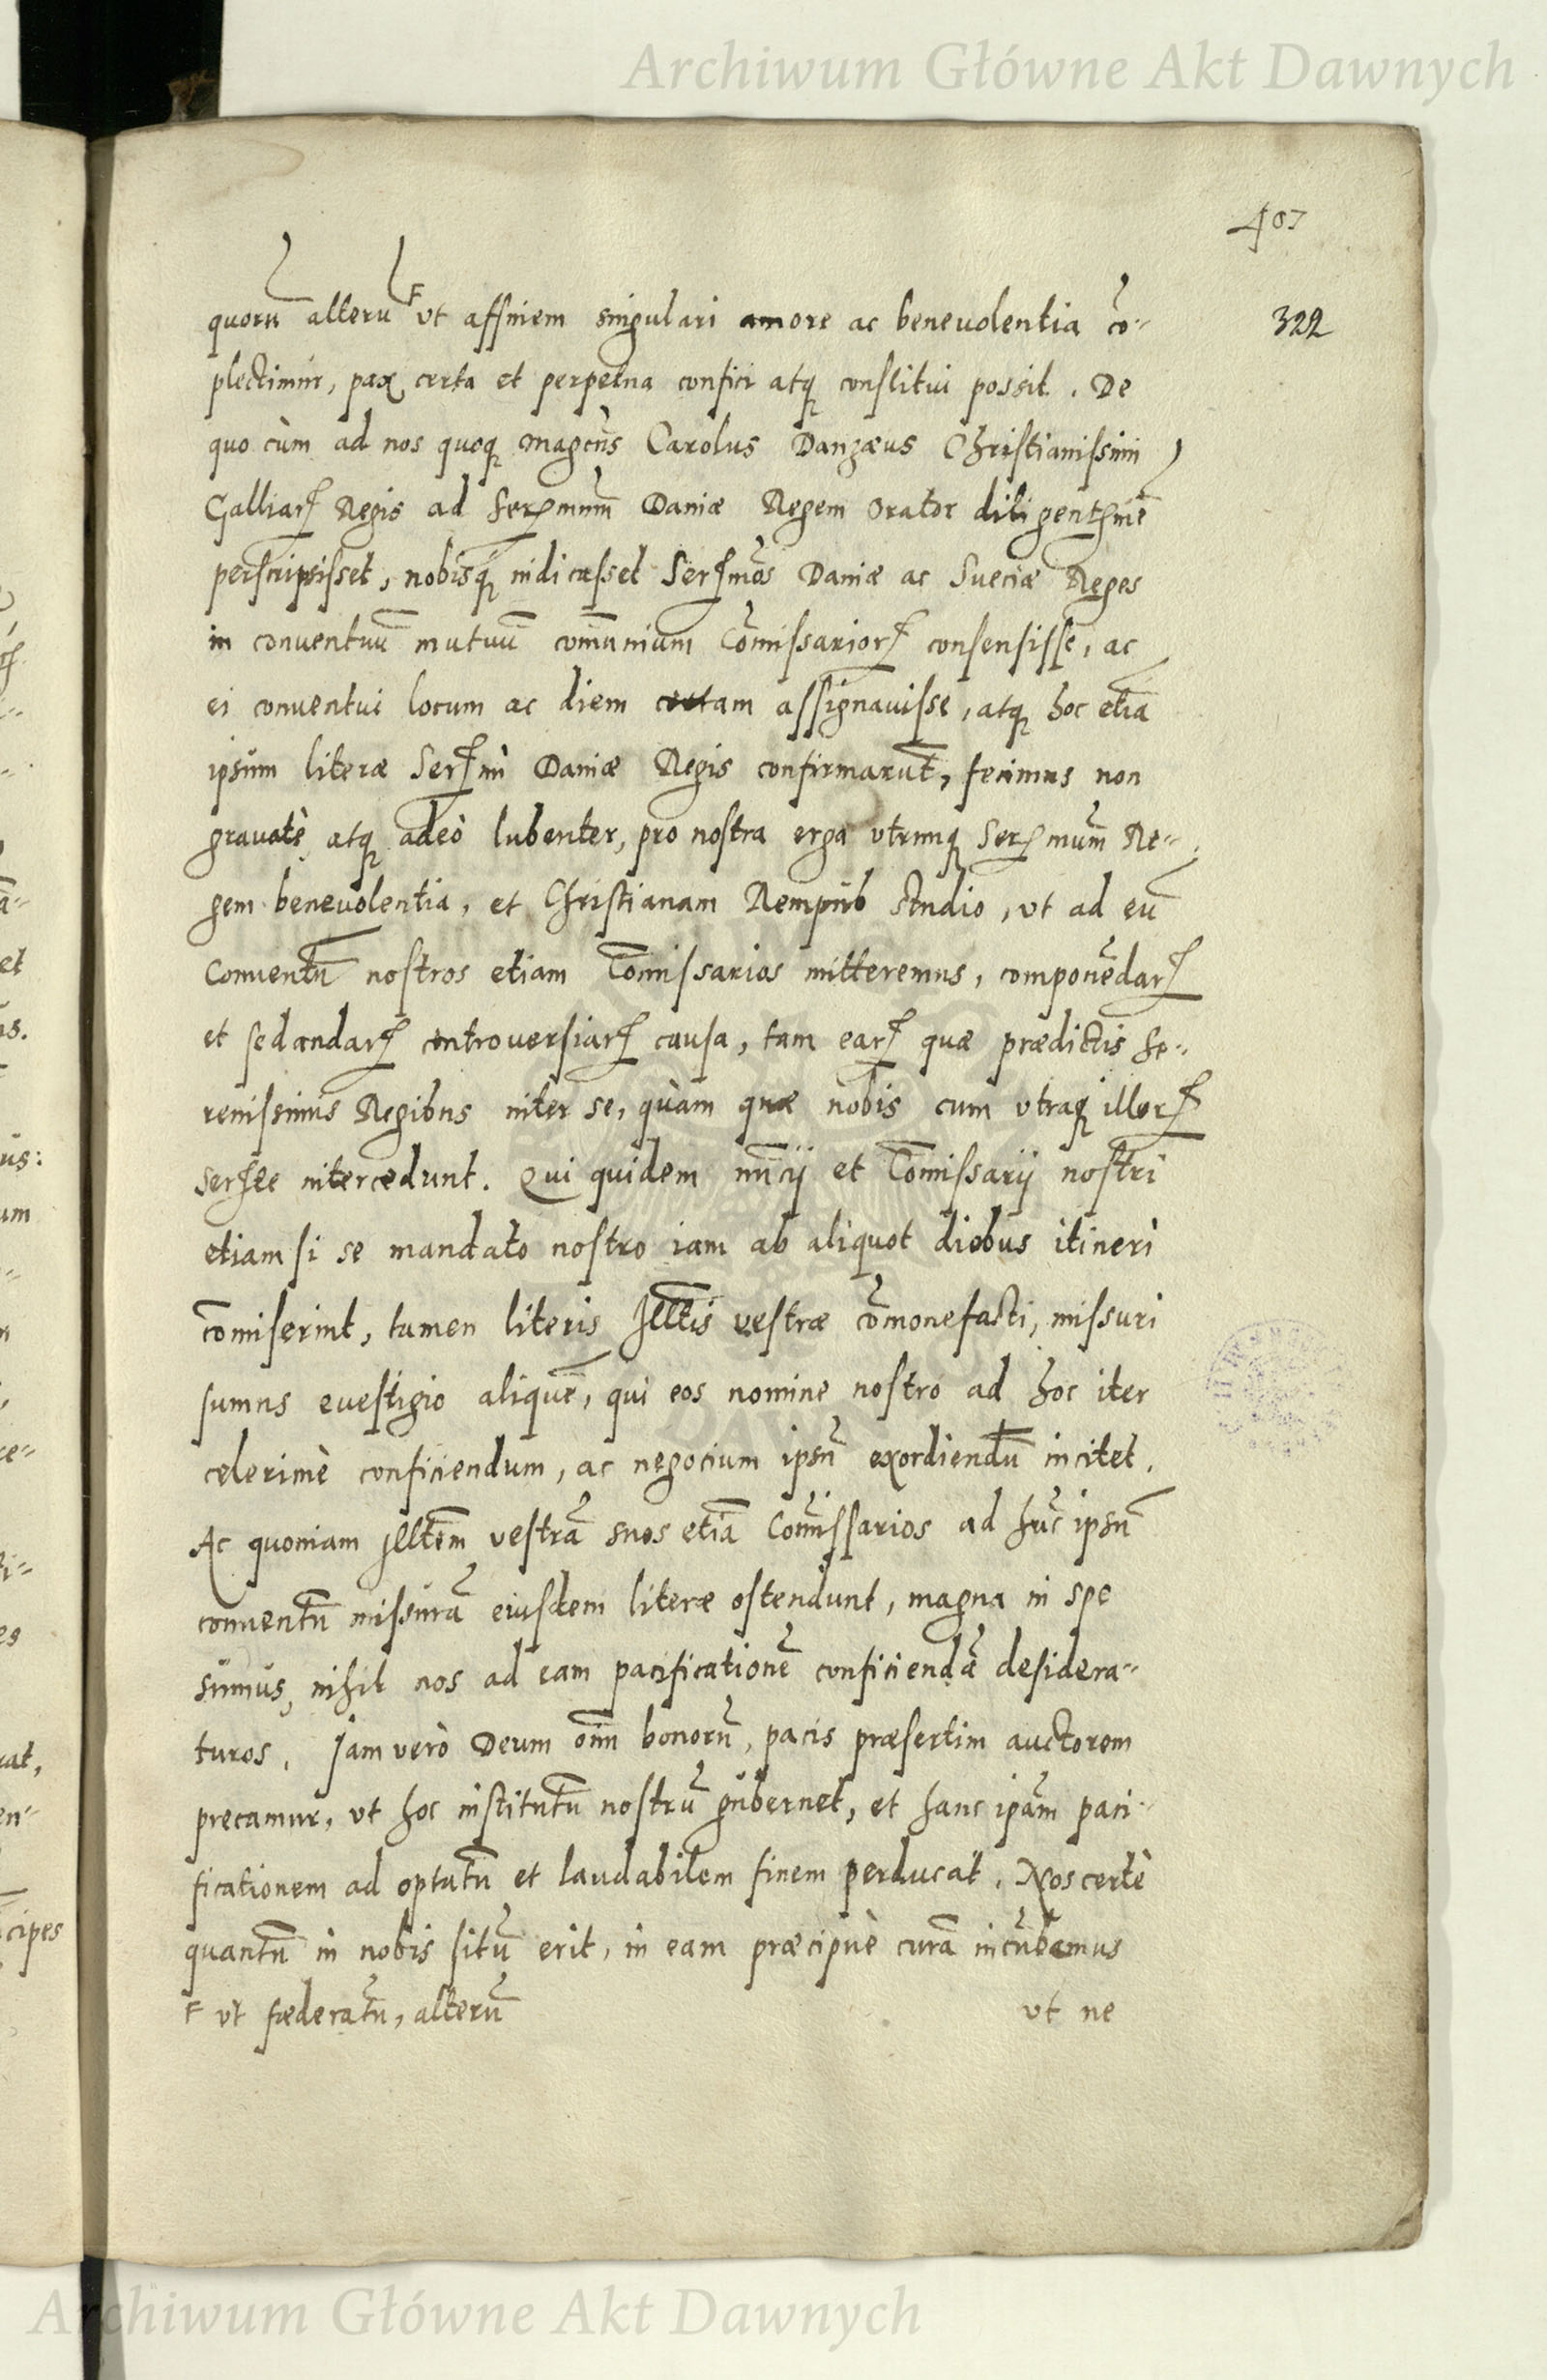 Archiwum Główne Akt Dawnych
407
322
quorū alterū F ut affinem singulari amore ac beneuolentia cō-
plectimur, pax certa et perpetua confici atq constitui possit. De
quo cùm ad nos quoq magcus Carolus Danzæus Christianissimi
Galliarꝝ Regis ad Serꝝmum Daniæ Regem orator diligentꝝmē
perscripsisset, nobisq́ indicasset Serꝝmos Daniæ ac Sueciæ Reges
in conuentuū mutuū com̄unium Com̄issariorꝝ consensisse, ac
ei conuentui locum ac diem certam assignauisse, atq hoc etiā
ipsum literæ Serꝝmi Daniæ Regis confirmarūt, fecimus non
grauatè atq adeò lubenter, pro nostra erga utrumq Serꝝmum Re-
gem beneuolentia, et Christianam Rempub studio, ut ad eū
Conuentū nostros etiam Com̄issarios mitteremus, componēdarꝝ
et sedandarꝝ controuersiarꝝ causa, tam earꝝ quæ prædictis Se-
renissimis Regibus inter se, quàm quæ nobis cum utraq illorꝝ
Serꝝte intercedunt. Qui quidem nuncij et Com̄issarij nostri
etiam si se mandato nostro iam ab aliquot diebus itineri
com̄iserint, tamen literis Illtis uestræ com̄onefacti, missuri
sumus euestigio aliquē, qui eos nomine nostro ad hoc iter
celerimè conficiendum, ac negocium ipsū exordiendū incitet.
Ac quoniam Illtem uestrā suos etiā Com̄issarios ad hūc ipsū
conuentū missurā eiusdem literæ ostendunt, magna in spe
sumus, nihil nos ad eam pacificationē conficiendā desidera-
turos. Jam verò Deum om̄ bonorū, pacis præsertim auctorem
precamur, ut hoc institutū nostrū gubernet, et hanc ipām paci-
ficationem ad optatū et laudabilem finem perducat. Nos certè
quantū in nobis sitū erit, in eam præcipuè curā incūbemus
F ut fœderatū, alterū
ut ne
Archiwum Główne Akt Dawnych